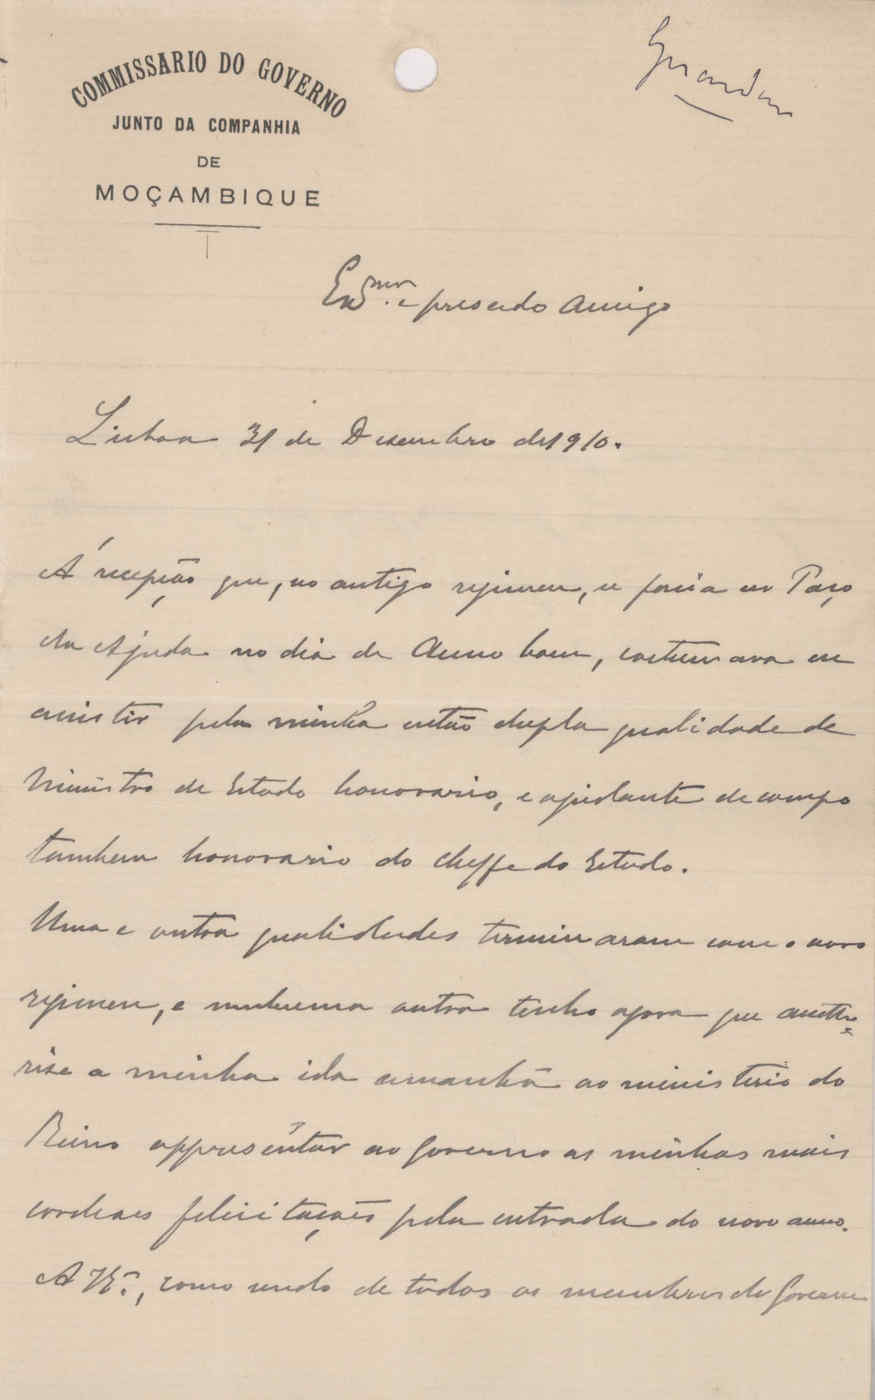 Guardar
COMMISSARIO DO GOVERNO
JUNTO DA COMPANHIA
DE
MOÇAMBIQUE
Exmo. e presado Amigo
Lisboa 31 de Dezembro de 1910.
Á recepção que, no antigo regimen, se fazia no Paço
da Ajuda no dia de Anno bom, costumava eu
assistir pela minha então dupla qualidade de
Ministro de Estado honorario, e ajudante de campo
tambem honorario do cheffe do Estado.
Uma e outra qualidades terminaram com o novo
regimen, e nenhuma outra tenho agora que autho-
rise a minha ida amanhã ao ministerio do
Reino appresentar ao Governo as minhas mais
cordeaes felicitações pela entrada do novo anno.
A V. Exª., como sendo de todos os membros do Governo